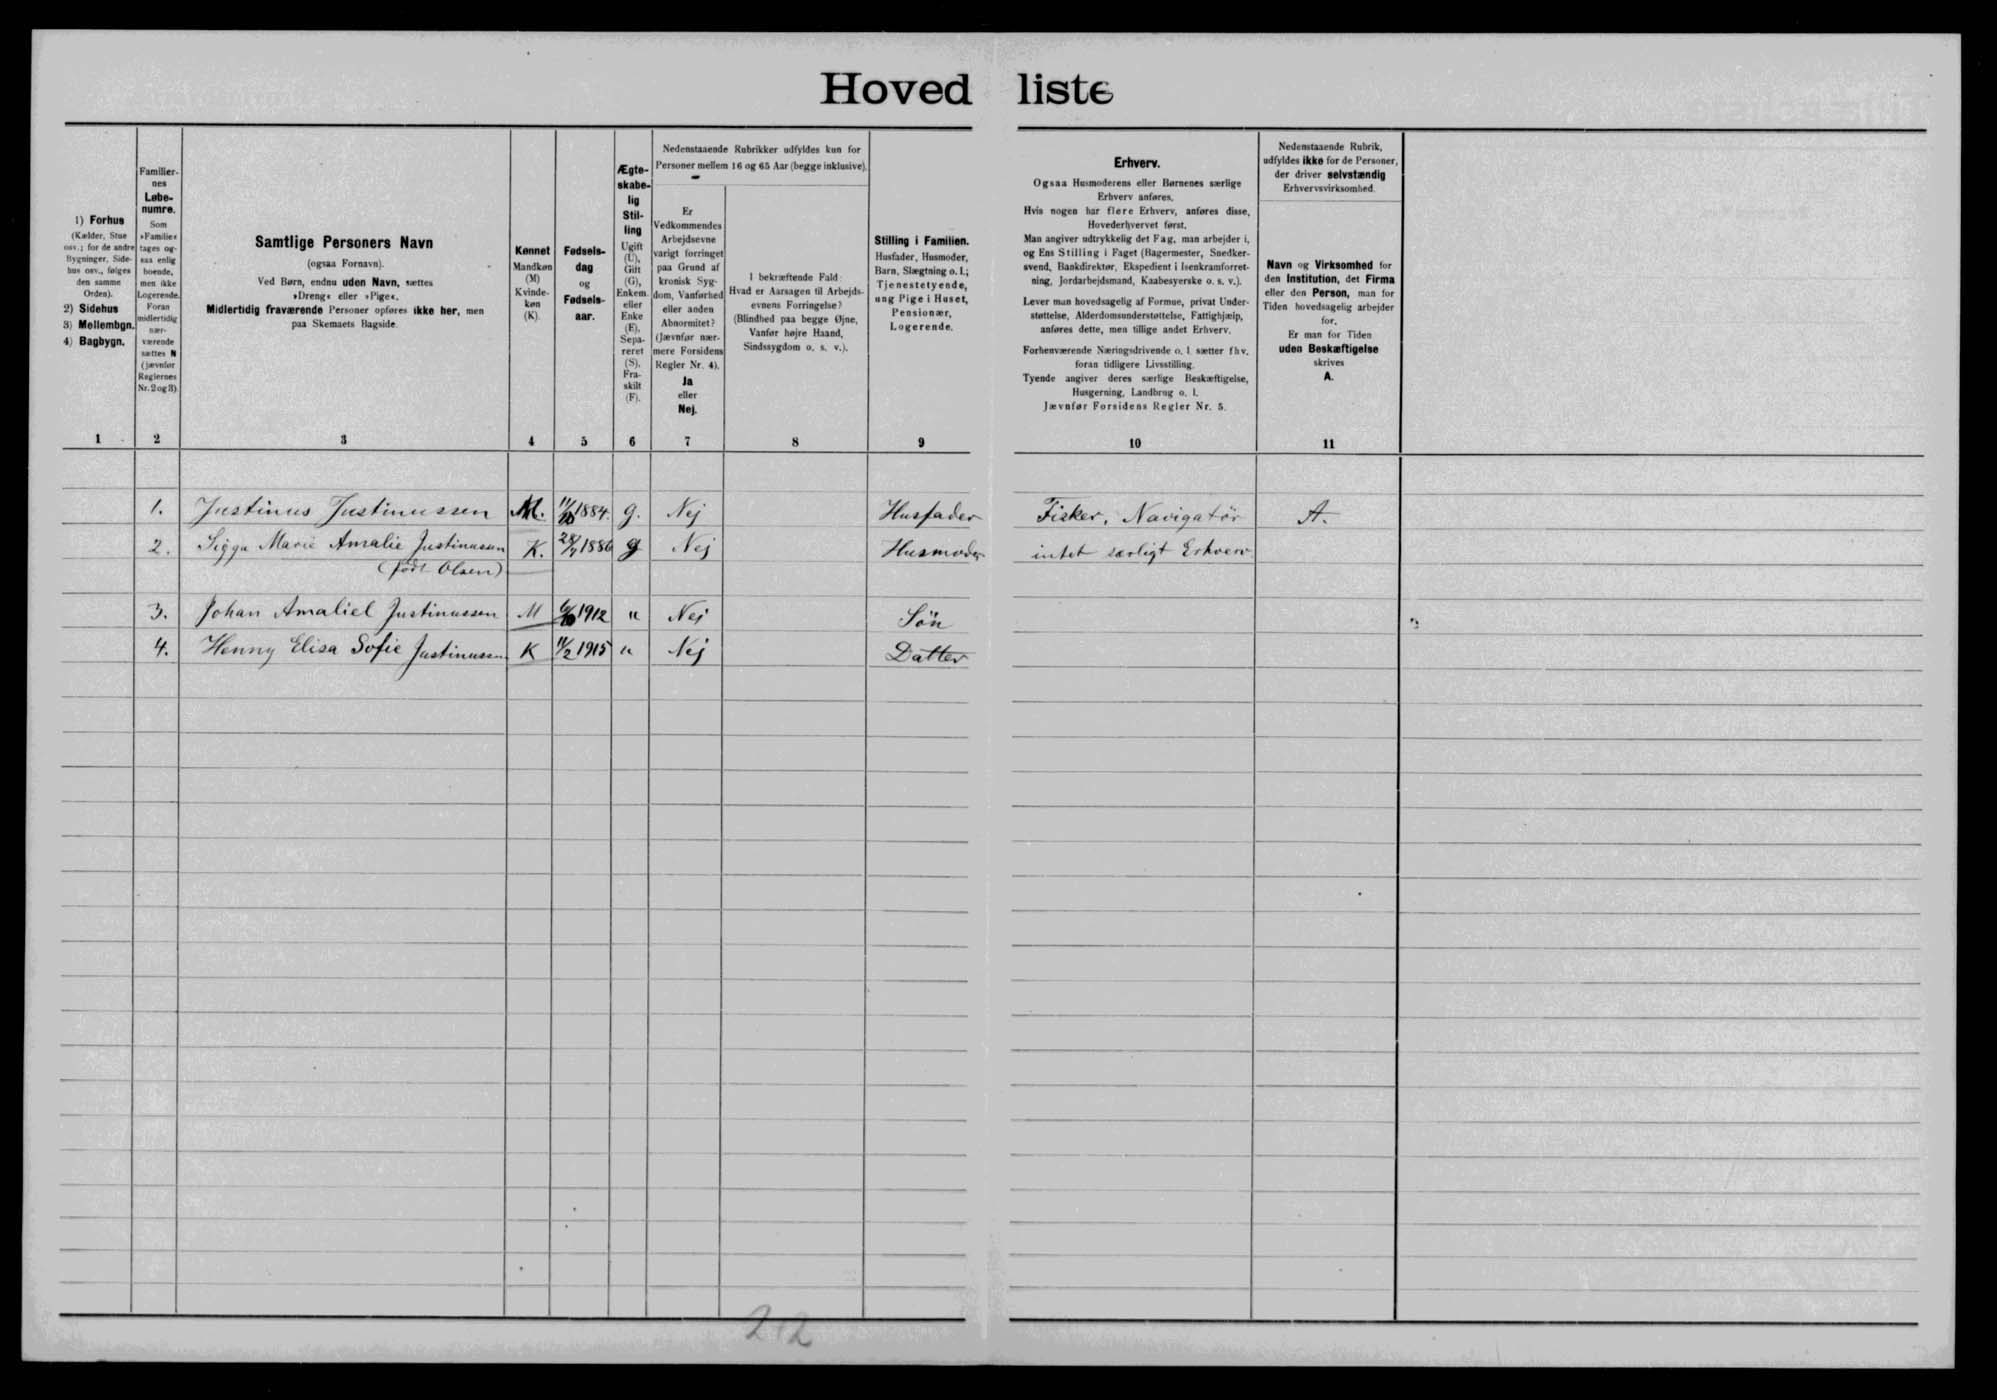 Hovedliste
1) Forhus
(Kælder, Stue
osv.; for de andre
Bygninger, Side-
hus osv., følges
den samme
Orden).
2) Sidehus
3) Mellembgn.
4) Bagbygn.
Familier-
nes
Løbe-
numre.
Som
»Familie«
tages og-
saa enlig
boende,
men ikke
Logerende.
Foran
midlertidig
nær-
værende
sættes N
(jævnfør
Reglernes
Nr. 2 og 3)
Samtlige Personers Navn
(ogsaa Fornavn).
Ved Børn, endnu uden Navn, sættes
»Dreng« eller »Pige«.
Midlertidig fraværende Personer opføres ikke her, men
paa Skemaets Bagside.
Kønnet
Mandkøn
(M)
Kvinde-
køn
(K).
Fødsels-
dag
og
Fødsels-
aar.
Ægte-
skabe-
lig
Stil-
ling
Ugift
(U),
Gift
(G),
Enkem.
eller
Enke
(E),
Sepa-
reret
(S),
Fra-
skilt
(F).
Nedenstaaende Rubrikker udfyldes kun for
Personer mellem 16 og 65 Aar (begge inklusive).
Er
Vedkommendes
Arbejdsevne
varigt forringet
paa Grund af
kronisk Syg-
dom, Vanførhed
eller anden
Abnormitet?
(Jævnfør nær-
mere Forsidens
Regler Nr. 4).
Ja
eller
Nej.
I bekræftende Fald:
Hvad er Aarsagen til Arbejds-
evnens Forringelse?
(Blindhed paa begge Øjne,
Vanfør højre Haand,
Sindssygdom o. s. v.).
Stilling i Familien.
Husfader, Husmoder,
Barn, Slægtning o. l.;
Tjenestetyende,
ung Pige i Huset,
Pensionær,
Logerende.
Erhverv.
Ogsaa Husmoderens eller Børnenes særlige
Erhverv anføres.
Hvis nogen har flere Erhverv, anføres disse,
Hovederhvervet først.
Man angiver udtrykkelig det Fag, man arbejder i,
og Ens Stilling i Faget (Bagermester, Snedker-
svend, Bankdirektør, Ekspedient i Isenkramforret-
ning, Jordarbejdsmand, Kaabesyerske o. s. v.).
Lever man hovedsagelig af Formue, privat Under-
støttelse, Alderdomsunderstøttelse, Fattighjælp,
anføres dette, men tillige andet Erhverv.
Forhenværende Næringsdrivende o. l. sætter fhv.
foran tidligere Livsstilling.
Tyende angiver deres særlige Beskæftigelse,
Husgerning, Landbrug o. l.
Jævnfør Forsidens Regler Nr. 5.
Nedenstaaende Rubrik,
udfyldes ikke for de Personer,
der driver selvstændig
Erhvervsvirksomhed.
Navn og Virksomhed for
den Institution, det Firma
eller den Person, man for
Tiden hovedsagelig arbejder
for.
Er man for Tiden
uden Beskæftigelse
skrives
A.
1 2 3 4 5 6 7 8 9 10 11
1. Justinus Justinussen M. 11/10 1884. g. Nej Husfader Fisker, Navigatör A.
2. Sigga Marie Amalie Justinussen K. 28/7 1886 g Nej Husmoder intet særligt Erhverv
(født Olsen)
3. Johan Amaliel Justinussen M 6/10 1912 " Nej Sön
4. Henny Elisa Sofie Justinussen K 11/2 1915 " Nej Datter
212